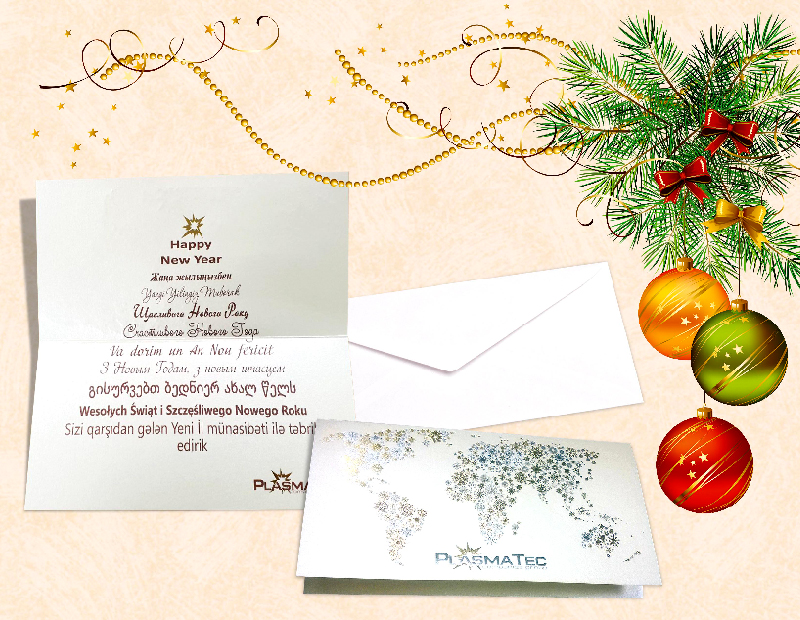 Happy
New Year
Жаңа жылыңызбен
Yangi Yilingiz Muborak
Щасливого Нового Року
Счастливого Нового Года
Va dorim un An Nou fericit
З Новым Годам, з новым шчасцем
გისურვებთ ბედნიერ ახალ წელს
Wesołych Świąt i Szczęśliwego Nowego Roku
Sizi qarşıdan gələn Yeni İ münasibəti ilə təbrik
edirik
PLASMA
PLASMATEC